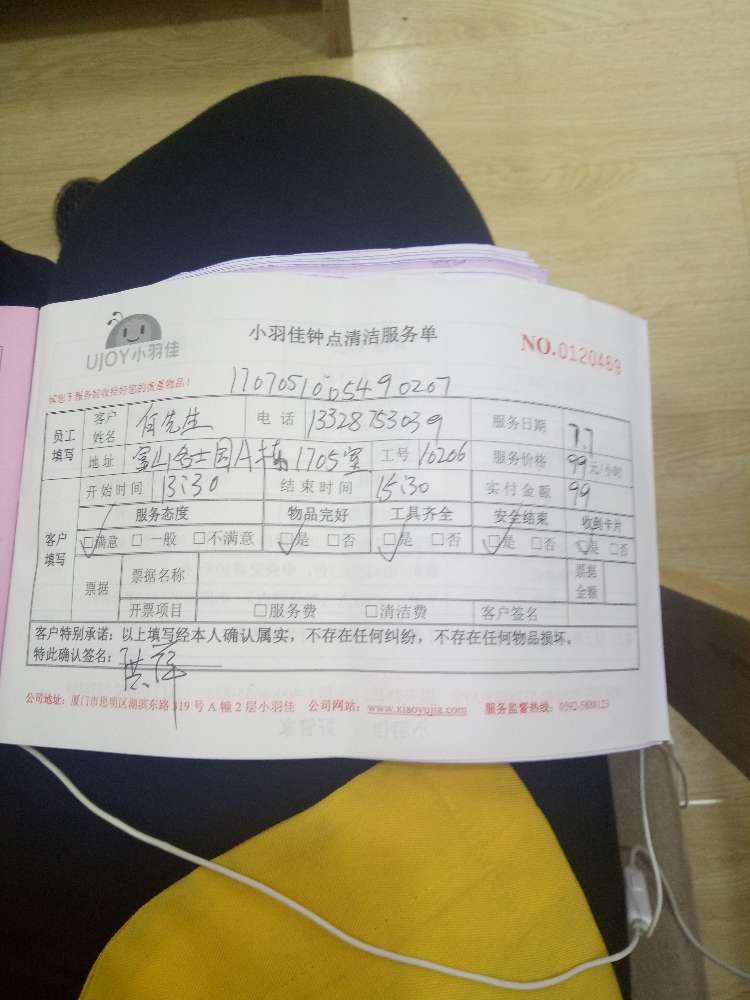 UJOY小羽佳
小羽佳钟点清洁服务单
NO.0120469
1707051005490207
员工填写 客户姓名 何先生 电话 13328753039 服务日期 7.7
地址 富山名士园A栋1705室 工号 16206 服务价格 99元/小时
开始时间 13:30 结束时间 15:30 实付金额 99
服务态度 物品完好 工具齐全 安全结束 收到卡片
客户填写 □满意 □一般 □不满意 □是 □否 □是 □否 □是 □否 □是 □否
票据 票据名称 票据金额
开票项目 □服务费 □清洁费 客户签名
客户特别承诺：以上填写经本人确认属实，不存在任何纠纷，不存在任何物品损坏。
特此确认签名：
公司地址：厦门市思明区湖滨东路319号A幢2层小羽佳 公司网站：www.xiaoyujia.com 服务监督热线：